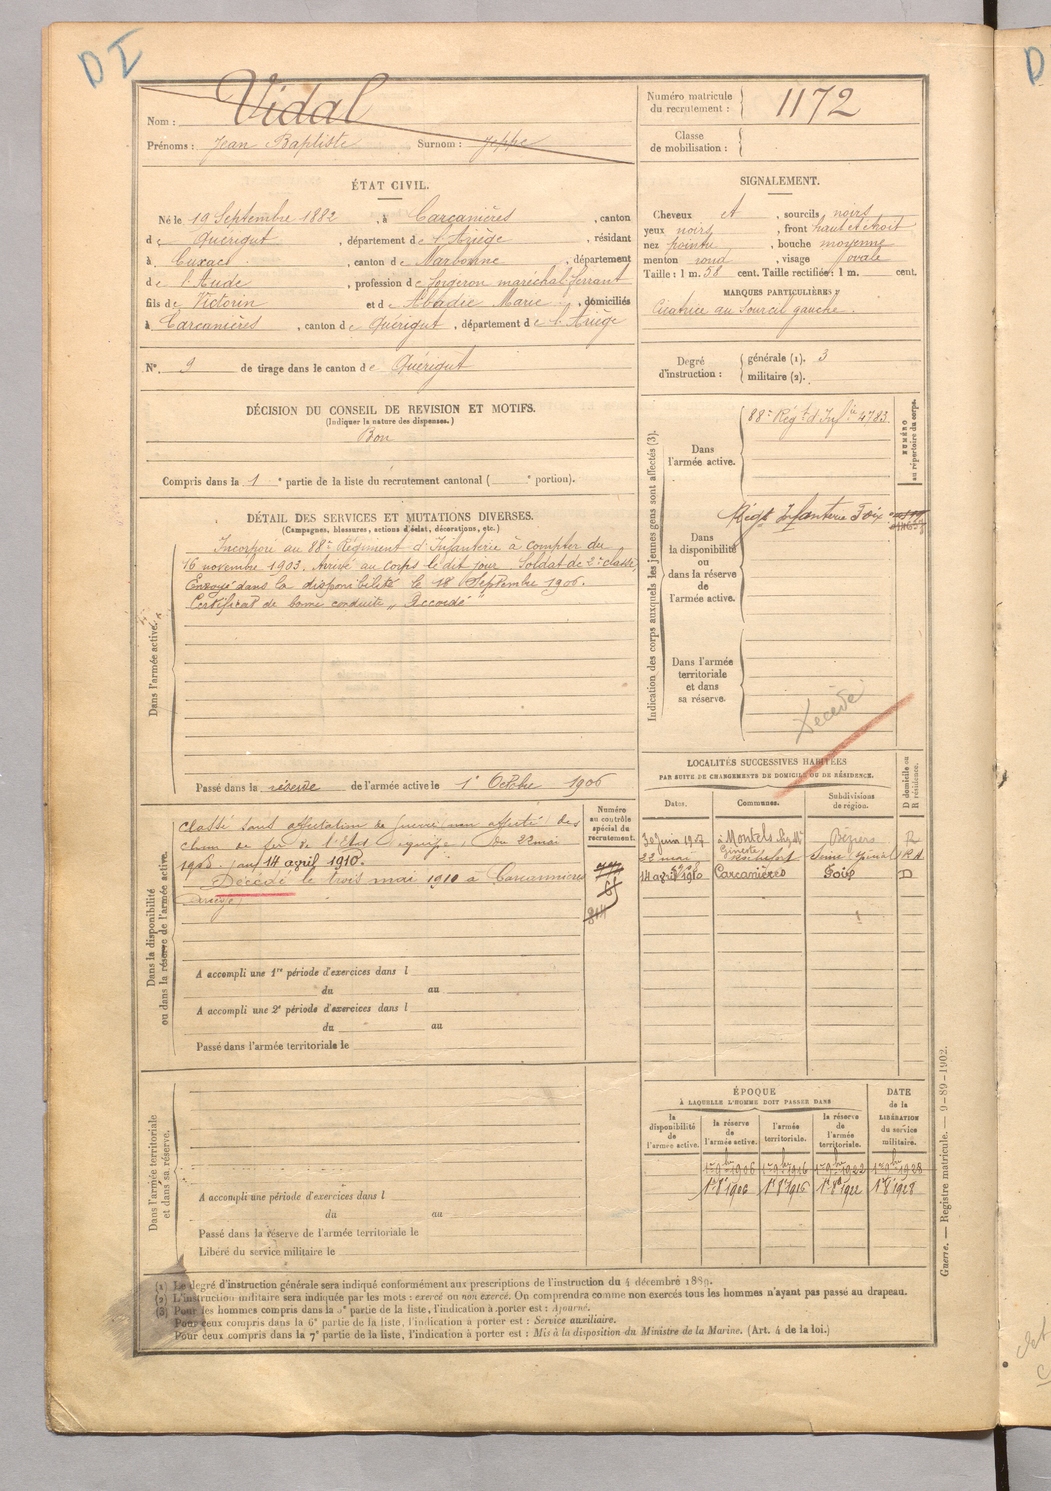 D I
Nom : Vidal
Prénoms : Jean Baptiste Surnom : Jeppe
Numéro matricule du recrutement : 1172
Classe de mobilisation :
ÉTAT CIVIL.
Né le 19 Septembre 1882, à Carcanières, canton
de Quérigut, département de l'Ariège, résidant
à Cuxac, canton de Narbonne, département
de l'Aude, profession de forgeron maréchal-ferrant
fils de Victorin et de Abadie Marie, domiciliés
à Carcanières, canton de Quérigut, département de l'Ariège
N°. 9 de tirage dans le canton de Quérigut
SIGNALEMENT.
Cheveux et, sourcils noirs
yeux noirs, front haut et droit
nez pointu, bouche moyenne
menton rond, visage ovale
Taille : 1 m. 58 cent. Taille rectifiée : 1 m. cent.
MARQUES PARTICULIÈRES :
Cicatrice au Sourcil gauche.
Degré d'instruction : générale (1). 3
militaire (2).
DÉCISION DU CONSEIL DE REVISION ET MOTIFS.
(Indiquer la nature des dispenses.)
Bon
Compris dans la 1e partie de la liste du recrutement cantonal ( e portion).
DÉTAIL DES SERVICES ET MUTATIONS DIVERSES.
(Campagnes, blessures, actions d'éclat, décorations, etc.)
Dans l'armée active.
Incorporé au 88e Régiment d'Infanterie à compter du
16 novembre 1903. Arrivé au corps le dit jour. Soldat de 2e classe
Envoyé dans la disponibilité le 18 Septembre 1906.
Certificat de bonne conduite „ Accordé "
Passé dans la réserve de l'armée active le 1er Octobre 1906
Indication des corps auxquels les jeunes gens sont affectés (3).
NUMÉRO au répertoire du corps.
Dans l'armée active.
88e Régt d'Infie 4783.
Dans la disponibilité ou dans la réserve de l'armée active.
Régt Infanterie Foix
Dans l'armée territoriale et dans sa réserve.
Décédé
LOCALITÉS SUCCESSIVES HABITÉES
PAR SUITE DE CHANGEMENTS DE DOMICILE OU DE RÉSIDENCE.
Dates. Communes. Subdivisions de région. D domicile ou R résidence.
30 juin 1907 à Montels chez Mr Gineste Béziers R
22 mai
14 avril 1910 Carcanières Foix D
Dans la disponibilité ou dans la réserve de l'armée active.
Numéro au contrôle spécial du recrutement.
Classé dans affectation de guerre (non affecté) des
chem. de fer de l'Etat du 22 mai
1908 au 14 avril 1910.
Décédé le trois mai 1910 à Carcannières
(Ariège)
A accompli une 1re période d'exercices dans l
du au
A accompli une 2e période d'exercices dans l
du au
Passé dans l'armée territoriale le
Dans l'armée territoriale et dans sa réserve.
A accompli une période d'exercices dans l
du au
Passé dans la réserve de l'armée territoriale le
Libéré du service militaire le
ÉPOQUE
À LAQUELLE L'HOMME DOIT PASSER DANS
la disponibilité de l'armée active.
la réserve de l'armée active.
l'armée territoriale.
la réserve de l'armée territoriale.
DATE de la LIBÉRATION du service militaire.
1er 9bre 1906 1er 9bre 1916 1er 9bre 1922 1er 9bre 1928
1er 8e 1906 1er 8e 1916 1er 8e 1922 1er 8e 1928
Guerre. — Registre matricule. — 9-89-1902.
(1) Le degré d'instruction générale sera indiqué conformément aux prescriptions de l'instruction du 4 décembre 1889.
(2) L'instruction militaire sera indiquée par les mots : exercé ou non exercé. On comprendra comme non exercés tous les hommes n'ayant pas passé au drapeau.
(3) Pour les hommes compris dans la 5e partie de la liste, l'indication à porter est : Ajourné.
Pour ceux compris dans la 6e partie de la liste, l'indication à porter est : Service auxiliaire.
Pour ceux compris dans la 7e partie de la liste, l'indication à porter est : Mis à la disposition du Ministre de la Marine. (Art. 4 de la loi.)